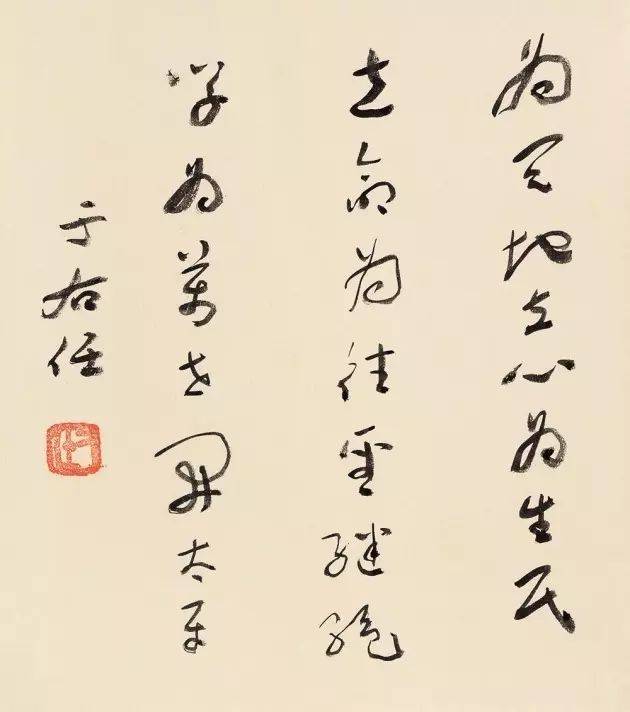 为天地立心為生民
立命为往聖继绝
学為萬世開太平
于右任